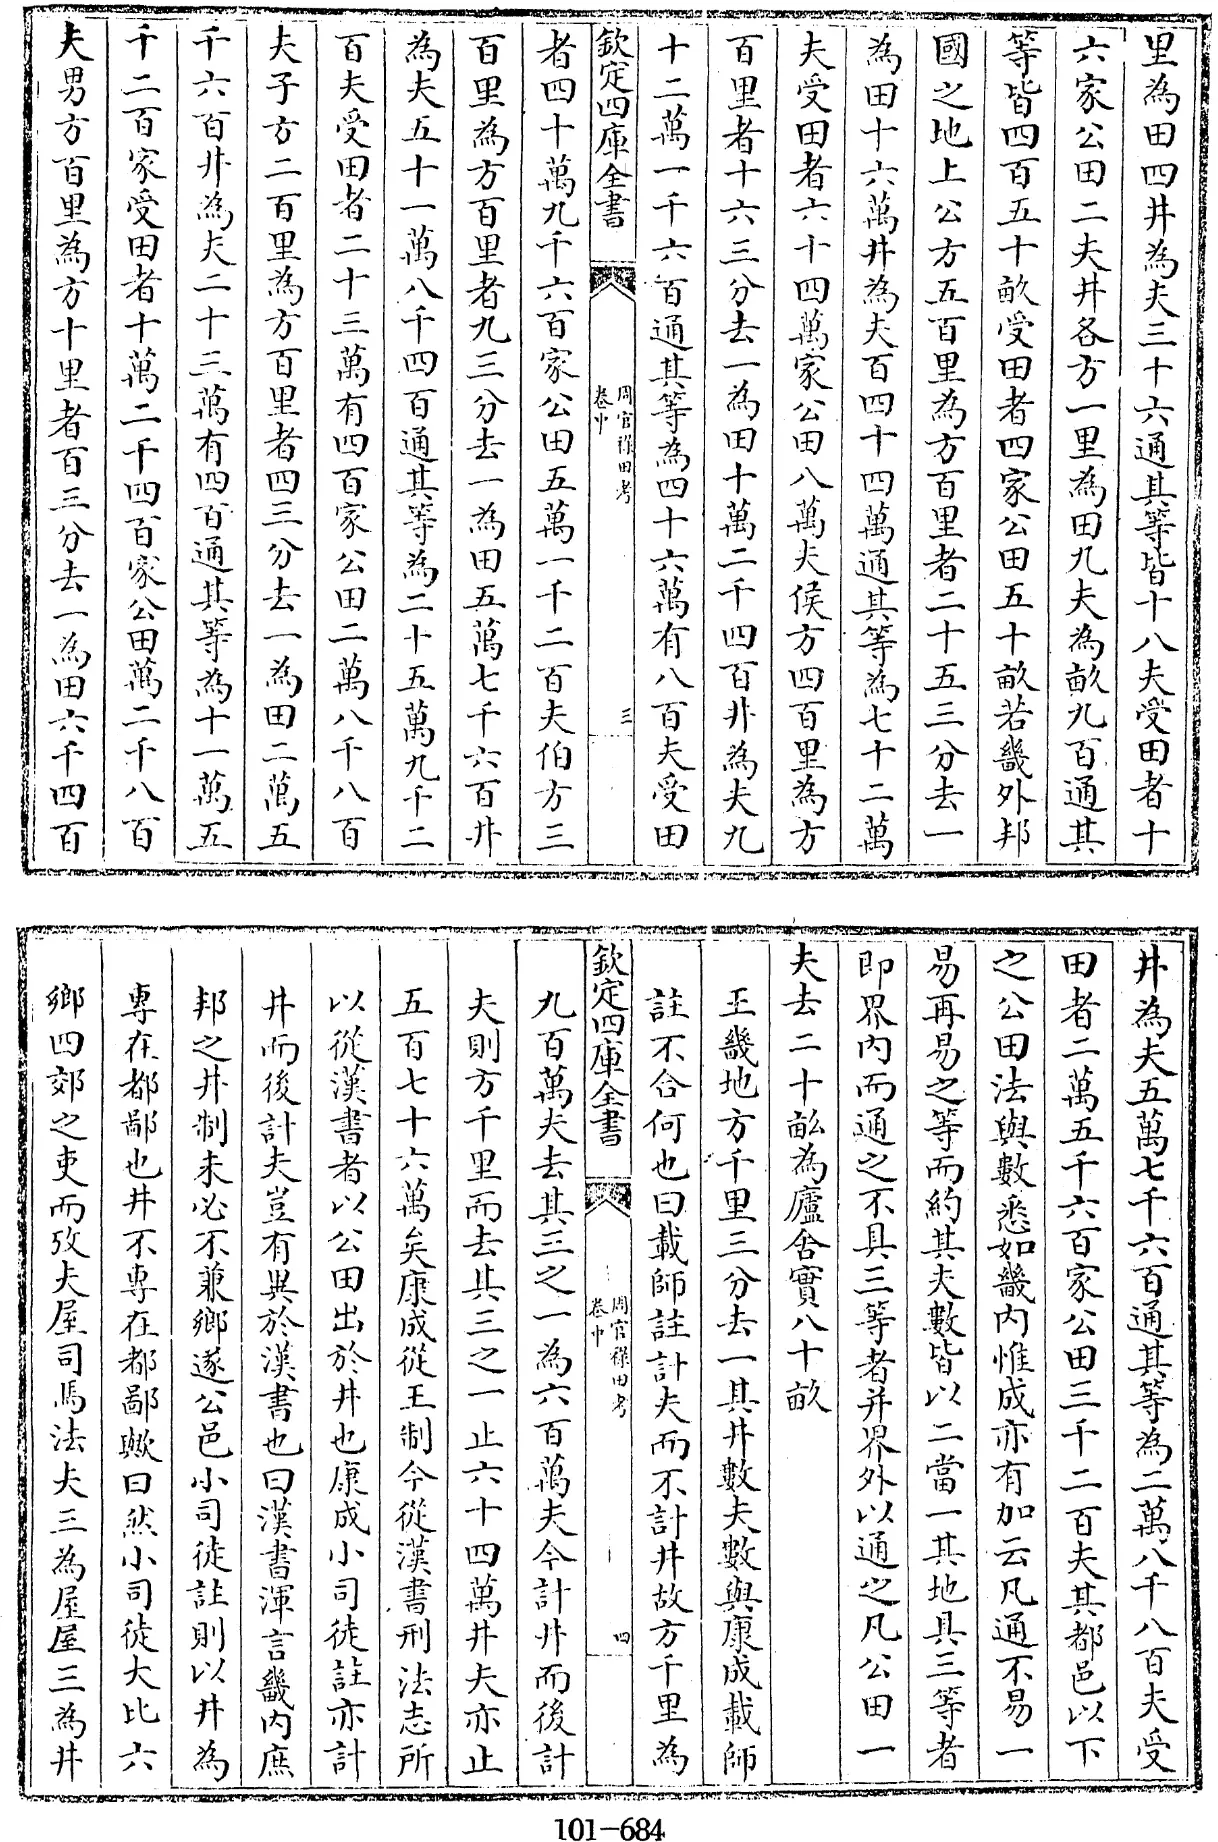 里為田四井為夫三十六通其等皆十八夫受田者十
六家公田二夫井各方一里為田九夫為畝九百通其
等皆四百五十畝受田者四家公田五十畝若畿外邦
國之地上公方五百里為方百里者二十五三分去一
為田十六萬井為夫百四十四萬通其等為七十二萬
夫受田者六十四萬家公田八萬夫侯方四百里為方
百里者十六三分去一為田十萬二千四百井為夫九
十二萬一千六百通其等為四十六萬有八百夫受田
欽定四庫全書
周官祿田考
卷中
三
者四十萬九千六百家公田五萬一千二百夫伯方三
百里為方百里者九三分去一為田五萬七千六百井
為夫五十一萬八千四百通其等為二十五萬九千二
百夫受田者二十三萬有四百家公田二萬八千八百
夫子方二百里為方百里者四三分去一為田二萬五
千六百井為夫二十三萬有四百通其等為十一萬五
千二百家受田者十萬二千四百家公田萬二千八百
夫男方百里為方十里者百三分去一為田六千四百
井為夫五萬七千六百通其等為二萬八千八百夫受
田者二萬五千六百家公田三千二百夫其都邑以下
之公田法與數悉如畿内惟成亦有加云凡通不易一
易再易之等而約其夫數皆以二當一其地具三等者
即界内而通之不具三等者并界外以通之凡公田一
夫去二十畝為廬舍實八十畝
王畿地方千里三分去一其井數夫數與康成載師
註不合何也曰載師註計夫而不計井故方千里為
欽定四庫全書
周官祿田考
卷中
四
九百萬夫去其三之一為六百萬夫今計井而後計
夫則方千里而去其三之一止六十四萬井夫亦止
五百七十六萬矣康成從王制今從漢書刑法志所
以從漢書者以公田出於井也康成小司徒註亦計
井而後計夫豈有異於漢書也曰漢書渾言畿内庶
邦之井制未必不兼鄉遂公邑小司徒註則以井為
專在都鄙也井不專在都鄙歟曰然小司徒大比六
鄉四郊之吏而攷夫屋司馬法夫三為屋屋三為井
101-684